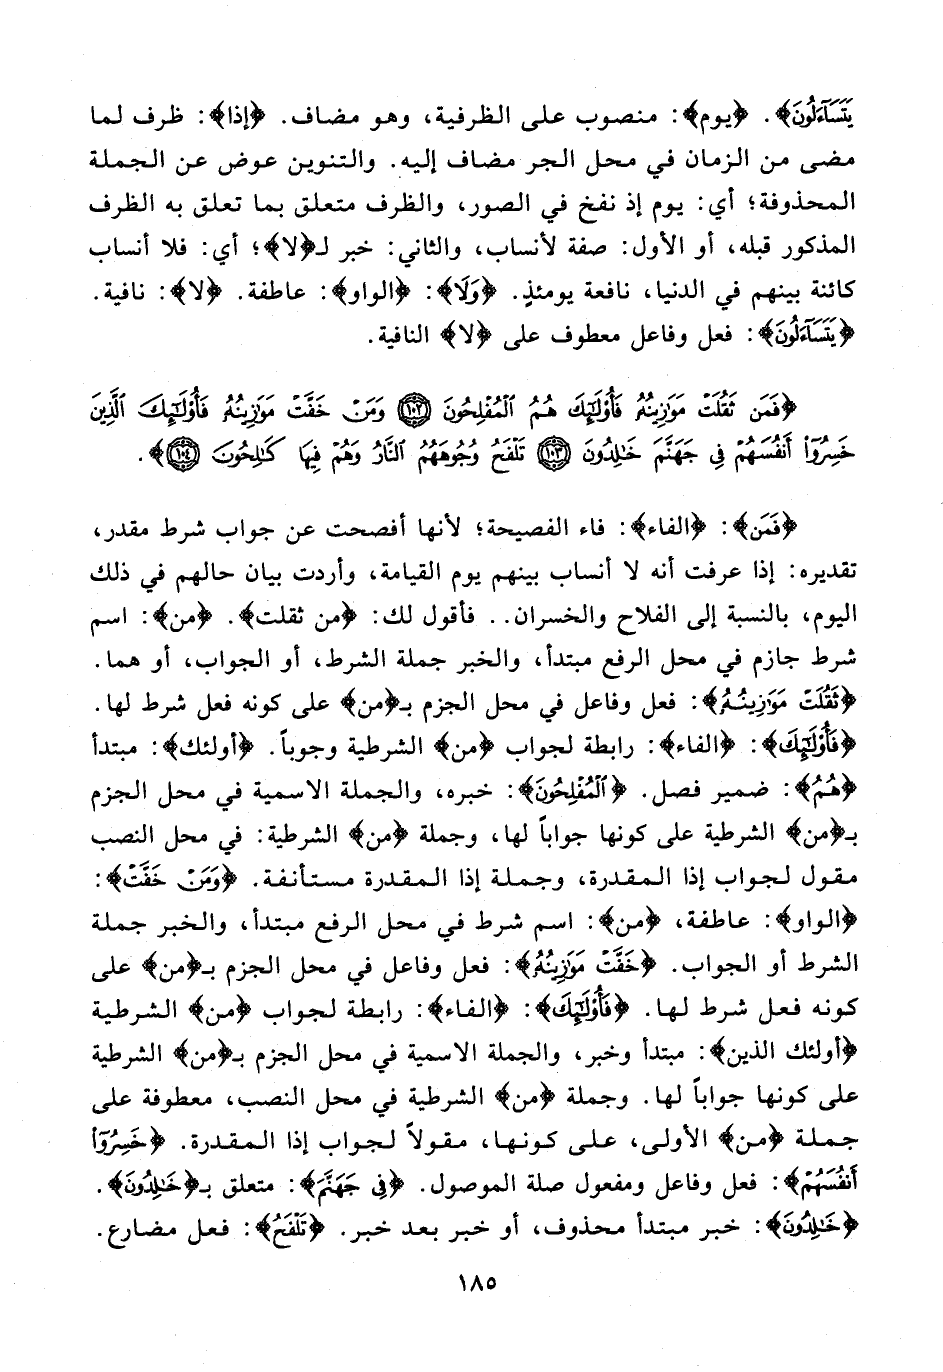 يَتَسَآءَلُونَ﴾. ﴿يوم﴾: منصوب على الظرفية، وهو مضاف. ﴿إذا﴾: ظرف لما
مضى من الزمان في محل الجر مضاف إليه. والتنوين عوض عن الجملة
المحذوفة؛ أي: يوم إذ نفخ في الصور، والظرف متعلق بما تعلق به الظرف
المذكور قبله، أو الأول: صفة لأنساب، والثاني: خبر لـ﴿لا﴾؛ أي: فلا أنساب
كائنة بينهم في الدنيا، نافعة يومئذٍ. ﴿وَلَا﴾: ﴿الواو﴾: عاطفة. ﴿لا﴾: نافية.
﴿يَتَسَآءَلُونَ﴾: فعل وفاعل معطوف على ﴿لا﴾ النافية.
﴿فَمَن ثَقُلَتْ مَوَٰزِينُهُۥ فَأُو۟لَٰٓئِكَ هُمُ ٱلْمُفْلِحُونَ ١٠٢ وَمَنْ خَفَّتْ مَوَٰزِينُهُۥ فَأُو۟لَٰٓئِكَ ٱلَّذِينَ
خَسِرُوٓا۟ أَنفُسَهُمْ فِى جَهَنَّمَ خَٰلِدُونَ ١٠٣ تَلْفَحُ وُجُوهَهُمُ ٱلنَّارُ وَهُمْ فِيهَا كَٰلِحُونَ ١٠٤﴾.
﴿فَمَن﴾: ﴿الفاء﴾: فاء الفصيحة؛ لأنها أفصحت عن جواب شرط مقدر،
تقديره: إذا عرفت أنه لا أنساب بينهم يوم القيامة، وأردت بيان حالهم في ذلك
اليوم، بالنسبة إلى الفلاح والخسران.. فأقول لك: ﴿من ثقلت﴾. ﴿من﴾: اسم
شرط جازم في محل الرفع مبتدأ، والخبر جملة الشرط، أو الجواب، أو هما.
﴿ثَقُلَتْ مَوَٰزِينُهُۥ﴾: فعل وفاعل في محل الجزم بـ﴿من﴾ على كونه فعل شرط لها.
﴿فَأُو۟لَٰٓئِكَ﴾: ﴿الفاء﴾: رابطة لجواب ﴿من﴾ الشرطية وجوباً. ﴿أولئك﴾: مبتدأ
﴿هُمُ﴾: ضمير فصل. ﴿ٱلْمُفْلِحُونَ﴾: خبره، والجملة الاسمية في محل الجزم
بـ﴿من﴾ الشرطية على كونها جواباً لها، وجملة ﴿من﴾ الشرطية: في محل النصب
مقول لجواب إذا المقدرة، وجملة إذا المقدرة مستأنفة. ﴿وَمَنْ خَفَّتْ﴾:
﴿الواو﴾: عاطفة، ﴿من﴾: اسم شرط في محل الرفع مبتدأ، والخبر جملة
الشرط أو الجواب. ﴿خَفَّتْ مَوَٰزِينُهُۥ﴾: فعل وفاعل في محل الجزم بـ﴿من﴾ على
كونه فعل شرط لها. ﴿فَأُو۟لَٰٓئِكَ﴾: ﴿الفاء﴾: رابطة لجواب ﴿من﴾ الشرطية
﴿أولئك الذين﴾: مبتدأ وخبر، والجملة الاسمية في محل الجزم بـ﴿من﴾ الشرطية
على كونها جواباً لها. وجملة ﴿من﴾ الشرطية في محل النصب، معطوفة على
جملة ﴿من﴾ الأولى، على كونها، مقولاً لجواب إذا المقدرة. ﴿خَسِرُوٓا۟
أَنفُسَهُمْ﴾: فعل وفاعل ومفعول صلة الموصول. ﴿فِى جَهَنَّمَ﴾: متعلق بـ﴿خَٰلِدُونَ﴾.
﴿خَٰلِدُونَ﴾: خبر مبتدأ محذوف، أو خبر بعد خبر. ﴿تَلْفَحُ﴾: فعل مضارع.
١٨٥